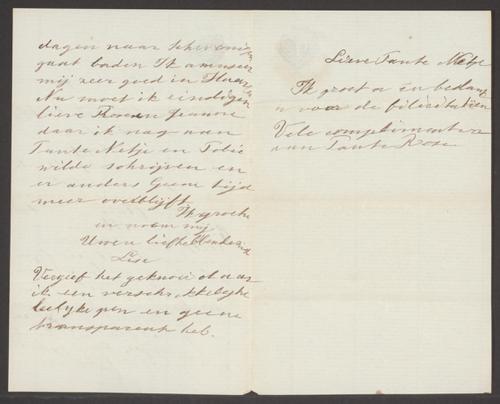 dagen naar Schevening
gaat baden Ik amuseer
mij zeer goed in
Nu moet ik eindigen
lieve
daar ik nog aan
Tante Netje en
wilde schrijven en
er anders geen tijd
meer overblijft.
Ik groet
in
Uwen liefhebbende
Lise
Vergief het geknoei daar
ik een verschrikkelijke
leelyke pen en geene
transparent heb.
Lieve Tante Netje
Ik groet u en bedank
u voor de felicitatien
Vele complimenten
van Tante Rose.